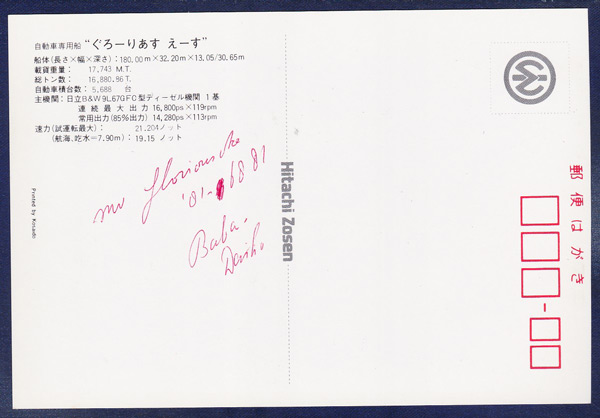 自動車専用船 “ぐろーりあす えーす”
船体(長さ×幅×深さ):180.00m×32.20m×13.05/30.65m
載貨重量: 17,743 M.T.
総トン数: 16,880.86T.
自動車積台数: 5,688 台
主機関:日立B&W9L67GFC型ディーゼル機関 1基
連続最大出力 16,800ps×119rpm
常用出力(85%出力) 14,280ps×113rpm
速力(試運転最大): 21.204ノット
(航海、吃水=7.90m): 19.15 ノット
mv
Baba-
Printed by Kosaido
Hitachi Zosen
郵便はがき